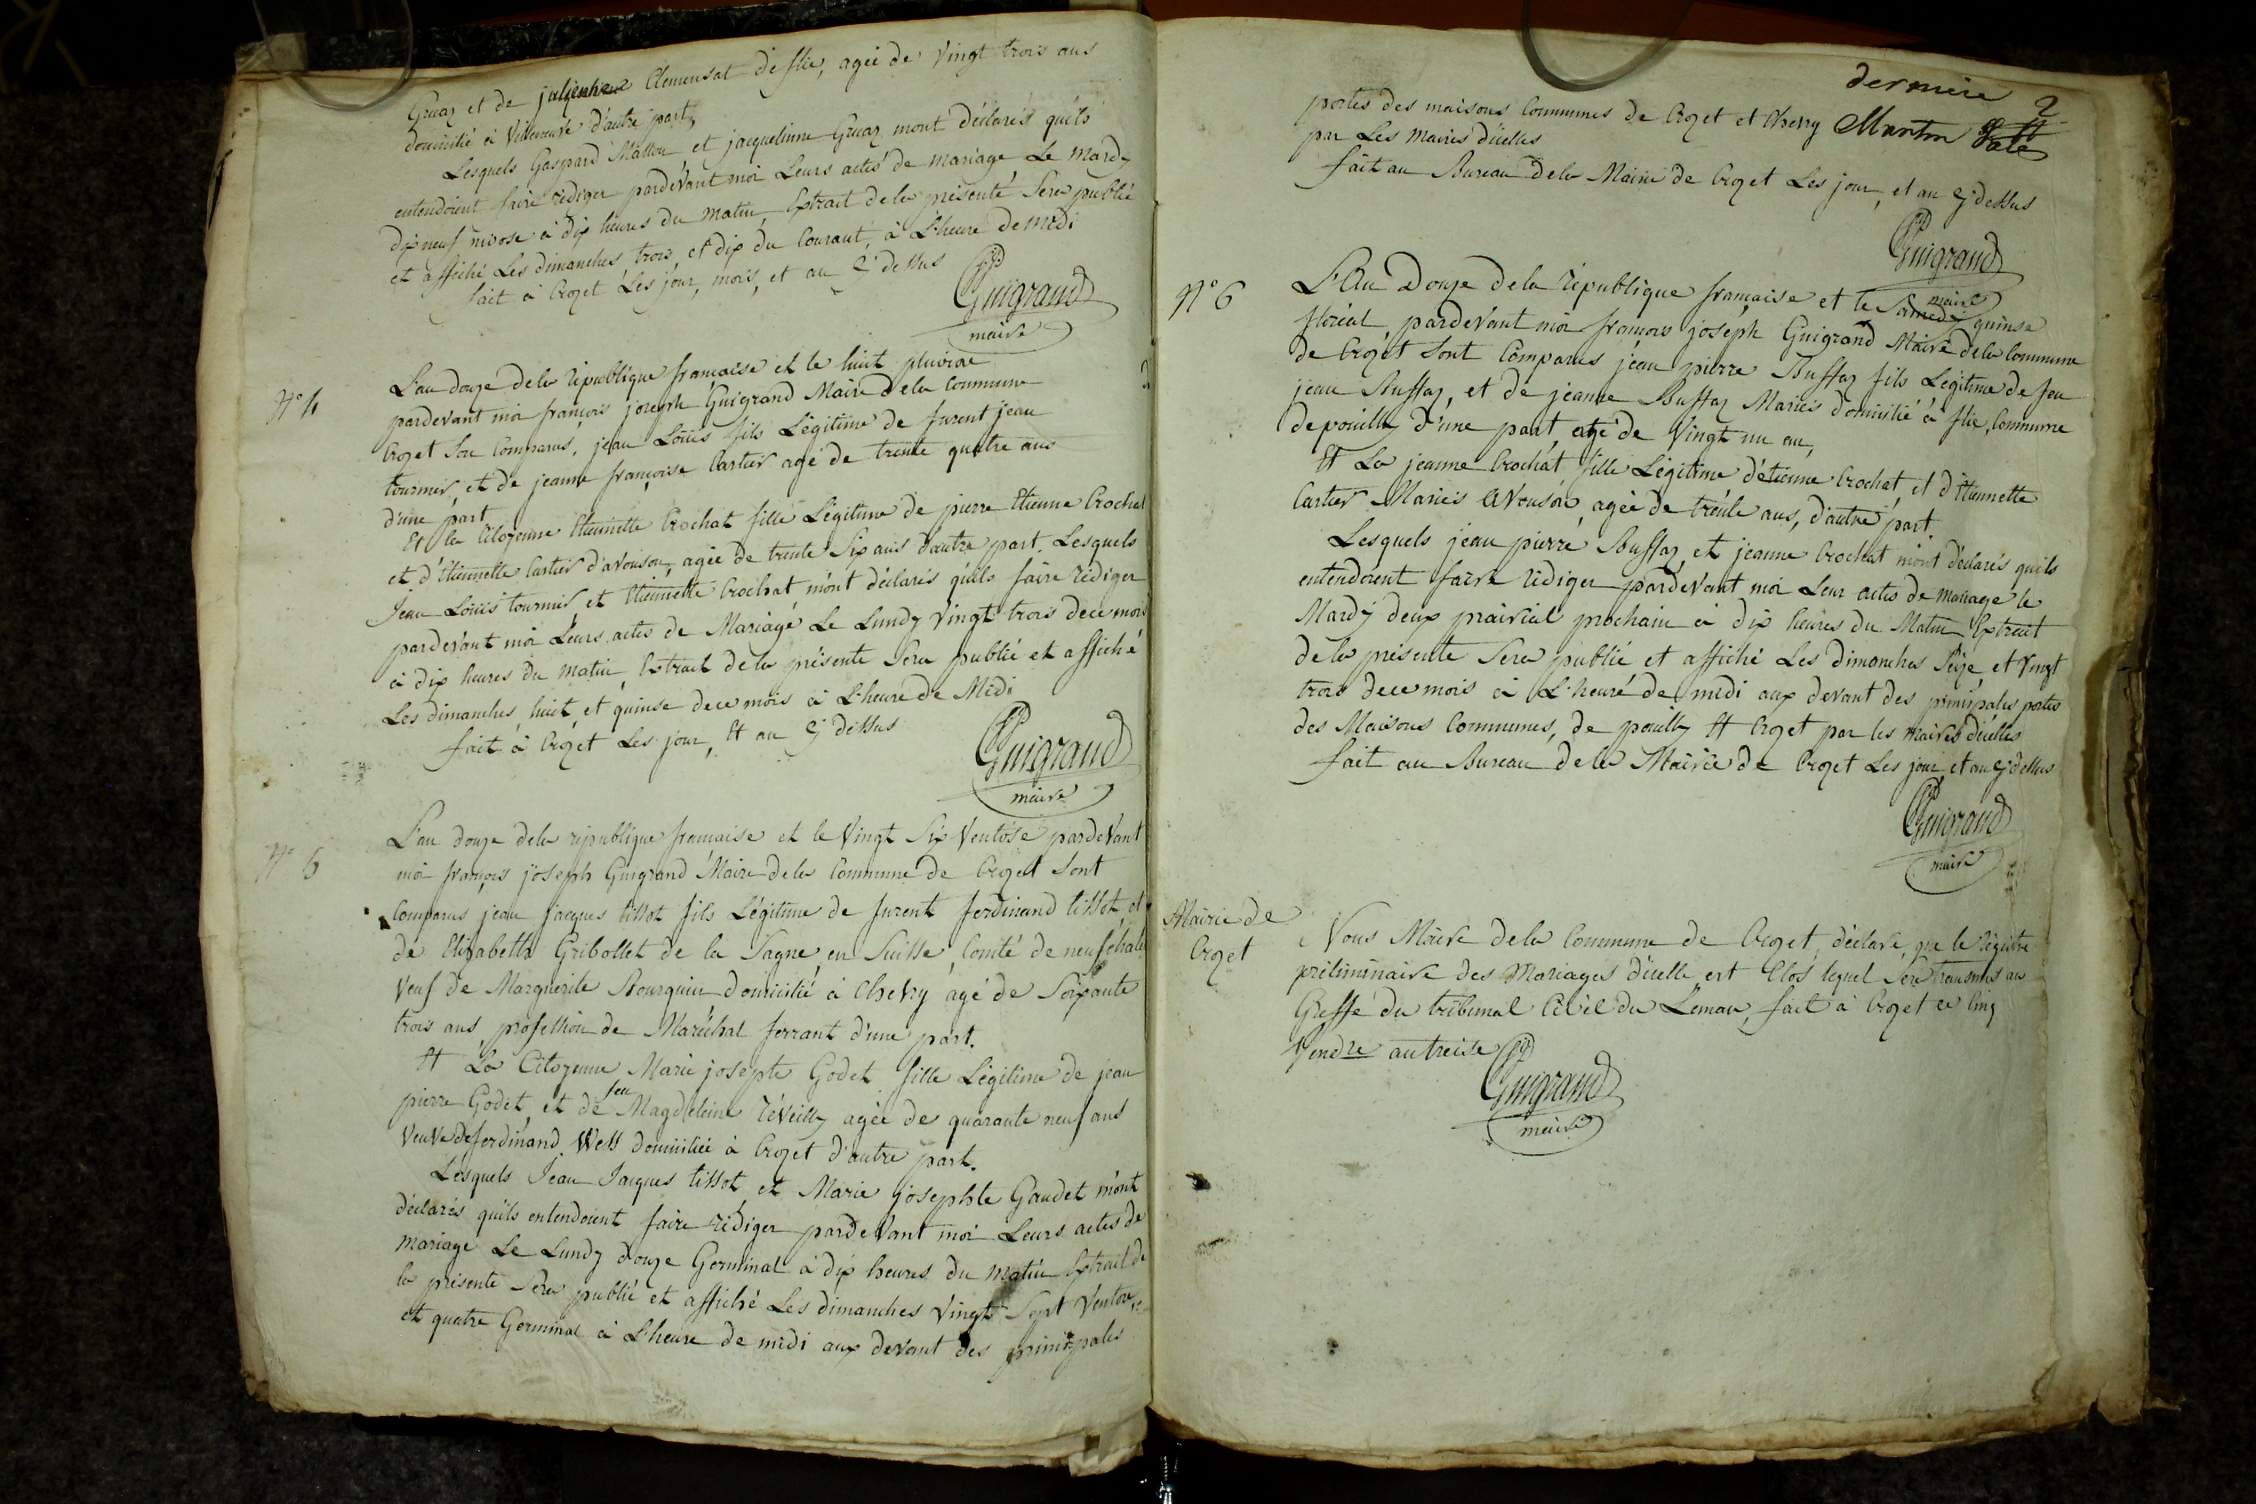 Gruaz et de julienne Clemensat de flie, agée de Vingt trois ans
domicilié à Villeneuve d'autre part,
Lesquels Gaspard Mattou et jacquelinne Gruaz mont déclarés qu'ils
entendoient faire rédiger pardevant moi Leurs actes de mariage Le mardy
dix neuf nivose à dix heures du matin, Extrait dela présente Sera publié
et affiché Les dimanches trois, et dix du Courant, à L'heure de midi
fait à Crozet Les jour, mois, et an Cy dessus
Guigrand
maire
N° 4
L'an douze dela république francaise et le huit pluviose
pardevant moi françois joseph Guigrand Maire dela Commune
Crozet Son Comparus, jean Loüis fils Légitime de furent jean
tournier, et de jeanne françoise Cartier agé de trente quatre ans
d'une part
Et la Citoyenne Etiennette Crochat fille Légitime de pierre Etienne Crochat
et d'Etiennette Cartier d'avouson, agée de trente Six ans d'autre part. Lesquels
Jean Loüis tournier et Etiennette Crochat m'ont déclarés qu'ils faire rédiger
pardevant moi Leurs actes de Mariage Le Lundy Vingt trois dece mois
à dix heures du matin, Extrait dela présente Sera publié et affiché
Les dimanches, huit, et quinse dece mois à L'heure de Midi
fait à Crozet Les jour, Et an Cy dessus
Guigrand
maire
N° 5
L'an douze dela république francaise et le Vingt Six Ventose pardevant
moi françois joseph Guigrand Maire dela Commune de Crozet Sont
Comparus jean jacques tissot fils Légitime de furent ferdinand tissot, et
de Elizabeth Gribollet de la Sagne en Suisse, Comté de neufchatel
Veuf de Marguerite Bourquin domicilié à Chevry agé de Soixante
trois ans, profession de Maréchal ferrant d'une part.
Et La Citoyenne Marie josephte Godet fille Légitime de jean
pierre Godet, et de feu Magdeleine réveilly agée de quarante neuf ans
Veuve de ferdinand Well domiciliée à Crozet d'autre part.
Lesquels Jean Jacques tissot, et Marie josephte Gaudet m'ont
déclarés qu'ils entendoient faire rédiger pardevant moi Leurs actes de
mariage Le Lundy douze Germinal à dix heures du matin Extrait de
la présente Sera publié et affiché Les dimanches Vingt Sept Ventose,
et quatre Germinal à L'heure de midi aux devant des principales
derniere 2
portes des maisons Communes de Crozet et Chevry
par Les maires d'icelles
fait au Bureau dela Mairie de Crozet Les jour, et an Cy dessus
Guigrand
maire
N° 6
L'An Douze dela république française et le Samedi quinse
floréal, pardevant moi françois joseph Guigrand Maire dela Commune
de Crozet Sont Comparus jean pierre Buffaz fils Légitime de feu
jean Buffaz, et de jeanne Buffaz Mariés domicilié à flie, Commune
de pouilly d'une part, agé de Vingt un an,
Et La jeanne Crochat fille Légitime d'étienne Crochat, et d'Etiennette
Cartier Mariés Avouson, agée de trente ans, d'autre part.
Lesquels jean pierre Buffaz, et jeanne Crochat m'ont déclarés qu'ils
entendoient faire rédiger pardevant moi Leur actes de mariage le
Mardy deux prairial prochain à dix heures du Matin Extrait
dela présente Sera publié et affiché Les dimanches Seize, et Vingt
trois dece mois à L'heure de midi aux devant des principales portes
des Maisons Communes, de pouilly Et Crozet par les maires d'icelles
fait au Bureau dela Mairie de Crozet Les jour, et an Cy dessus
Guigrand
maire
Mairie de
Crozet
Nous Maire dela Commune de Crozet, déclare, que le régistre
préliminaire des Mariages d'icelle est Clos, lequel Sera transmis au
Greffe du tribunal Civil du Léman, fait à Crozet ce Cinq
Vendre an treise
Guigrand
maire